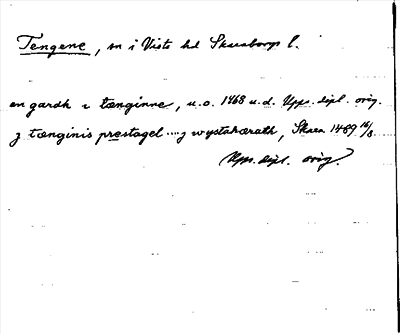 Tengene, sn i Viste hd Skaraborgs l.
en gardh i tænginne, u.o. 1468 u.d. Upps. dipl. orig.
j tænginis prestagel .... j wystahæradh, Skara 1489 16/8
Upps. dipl. orig.